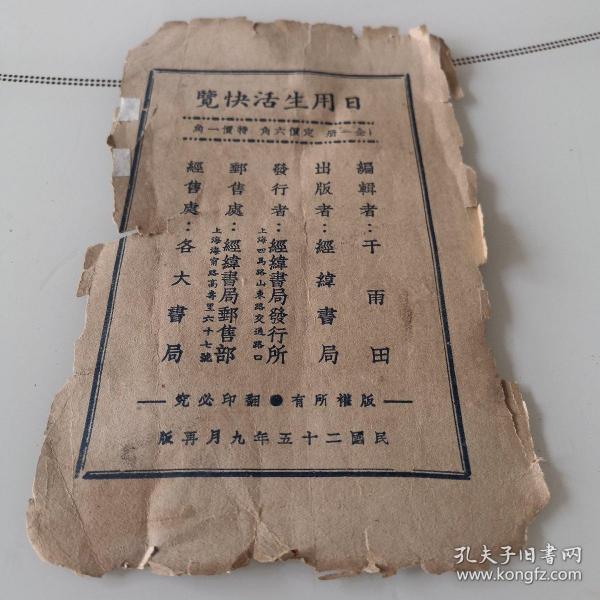 日用生活快覽
全一册 定價六角 特價一角
編輯者：千雨田
出版者：經緯書局
發行者：經緯書局發行所
上海四馬路山東路交通路口
郵售處：經緯書局郵售部
上海海甯路高壽里六十七號
經售處：各大書局
版權所有●翻印必究
民國二十五年九月再版
孔夫子旧书网
www.kongfz.com